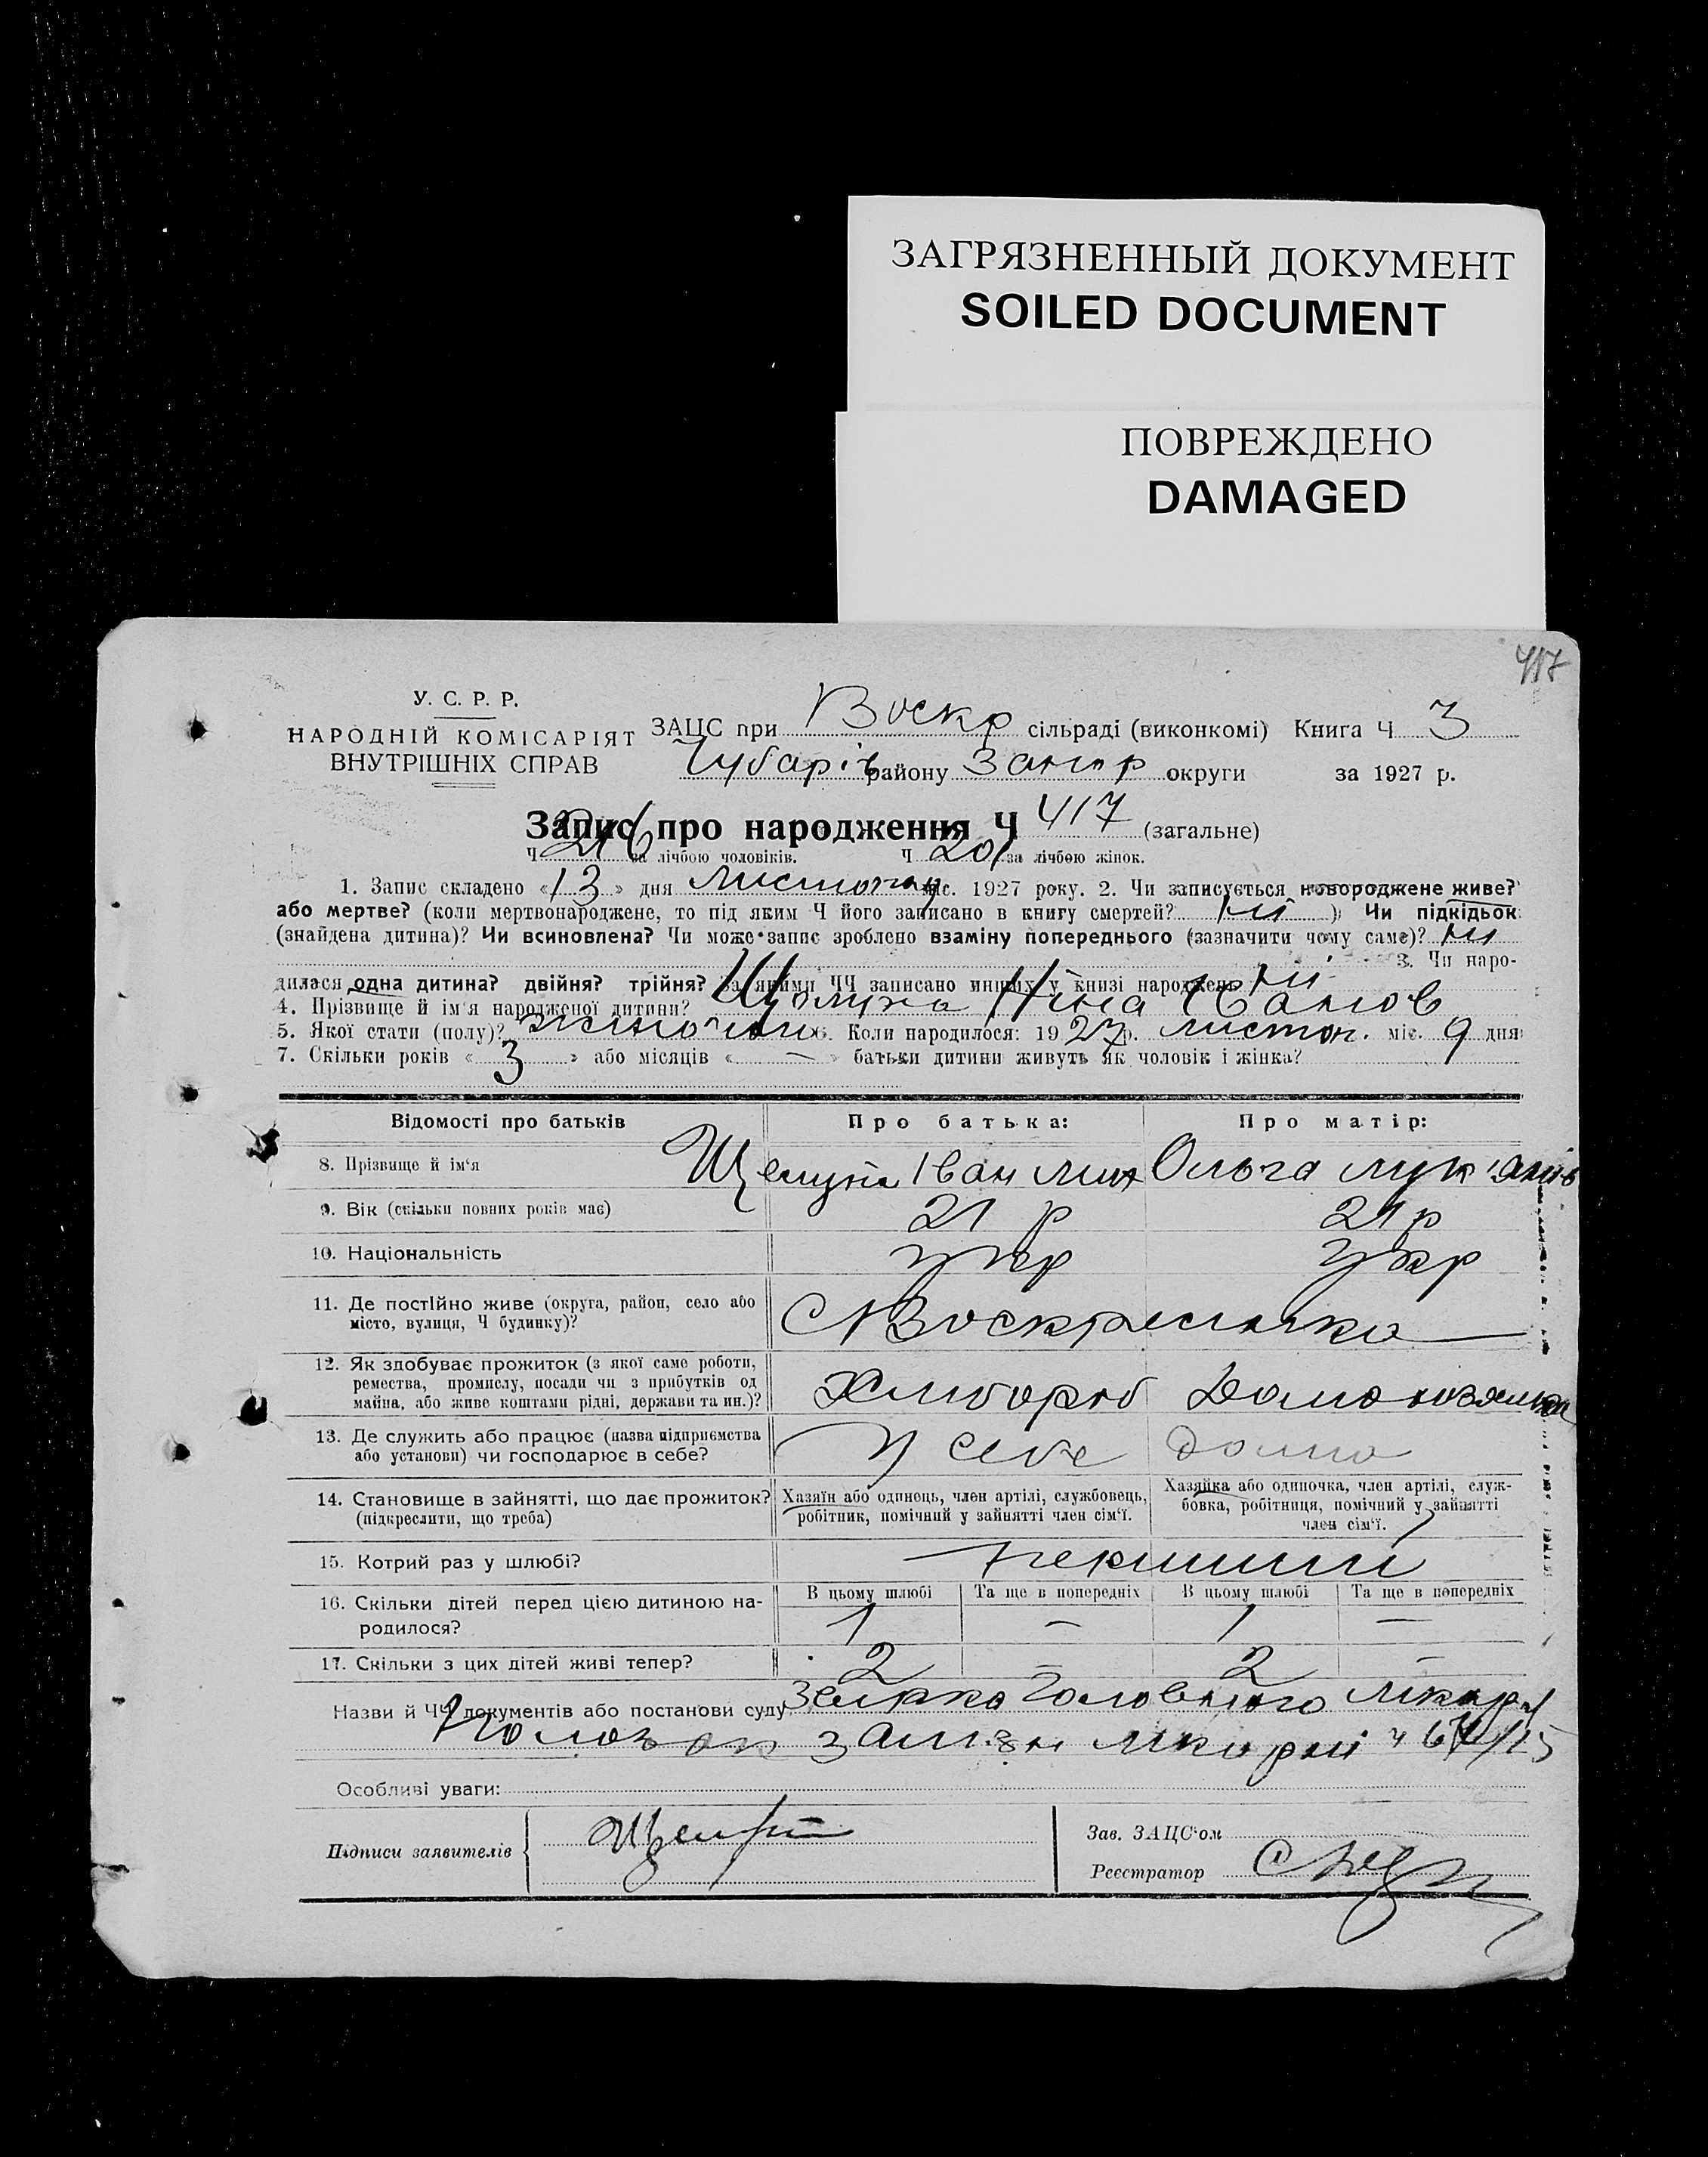 ЗАГРЯЗНЕННЫЙ ДОКУМЕНТ
SOILED DOCUMENT
ПОВРЕЖДЕНО
DAMAGED
417
У. С. Р. Р.
НАРОДНІЙ КОМІСАРІЯТ
ВНУТРІШНІХ СПРАВ
ЗАЦС при Воскр сільраді (виконкомі) Книга Ч 3
Чубарів району Запор округи за 1927 р.
Запис про народження Ч 417 (загальне)
Ч 216 за лічбою чоловіків. Ч 201 за лічбою жінок.
1. Запис складено «13» дня листопад міс. 1927 року. 2. Чи записується новороджене живе?
або мертве? (коли мертвонароджене, то під яким Ч його записано в книгу смертей? ні ) Чи підкідьок
(знайдена дитина)? Чи всиновлена? Чи може запис зроблено взаміну попереднього (зазначити чому саме)? ні
3. Чи наро-
дилася одна дитина? двійня? трійня? За якими ЧЧ записано инших у книзі народжень ні
4. Прізвище й ім'я народженої дитини? Ніна Іванов
5. Якої стати (полу)? 6. Коли народилося: 1927 р. листоп. міс. 9 дня
7. Скільки років « 3 » або місяців « — » батьки дитини живуть як чоловік і жінка?
Відомості про батьків Про батька: Про матір:
8. Прізвище й ім'я Іван Мих Ольга Лук'янів
9. Вік (скільки повних років має) 21 р 21 р
10. Національність укр укр
11. Де постійно живе (округа, район, село або
місто, вулиця, Ч будинку)? С Воскресенка
12. Як здобуває прожиток (з якої саме роботи,
ремества, промислу, посади чи з прибутків од
майна, або живе коштами рідні, держави та ин.)? Хлібороб
13. Де служить або працює (назва підприємства
або установи) чи господарює в себе? У себе дома
14. Становище в зайнятті, що дає прожиток?
(підкреслити, що треба)
Хазяїн або одинець, член артілі, службовець,
робітник, помічний у зайнятті член сім'ї.
Хазяйка або одиночка, член артілі, служ-
бовка, робітниця, помічний у зайнятті
член сім'ї.
15. Котрий раз у шлюбі? перший
16. Скільки дітей перед цією дитиною на-
родилося?
В цьому шлюбі Та ще в попередніх В цьому шлюбі Та ще в попередніх
1 — 1 —
17. Скільки з цих дітей живі тепер? 2 — 2 —
Назви й ЧЧ документів або постанови суду Головного
Особливі уваги:
Підписи заявителів
Зав. ЗАЦС'ом
Реєстратор